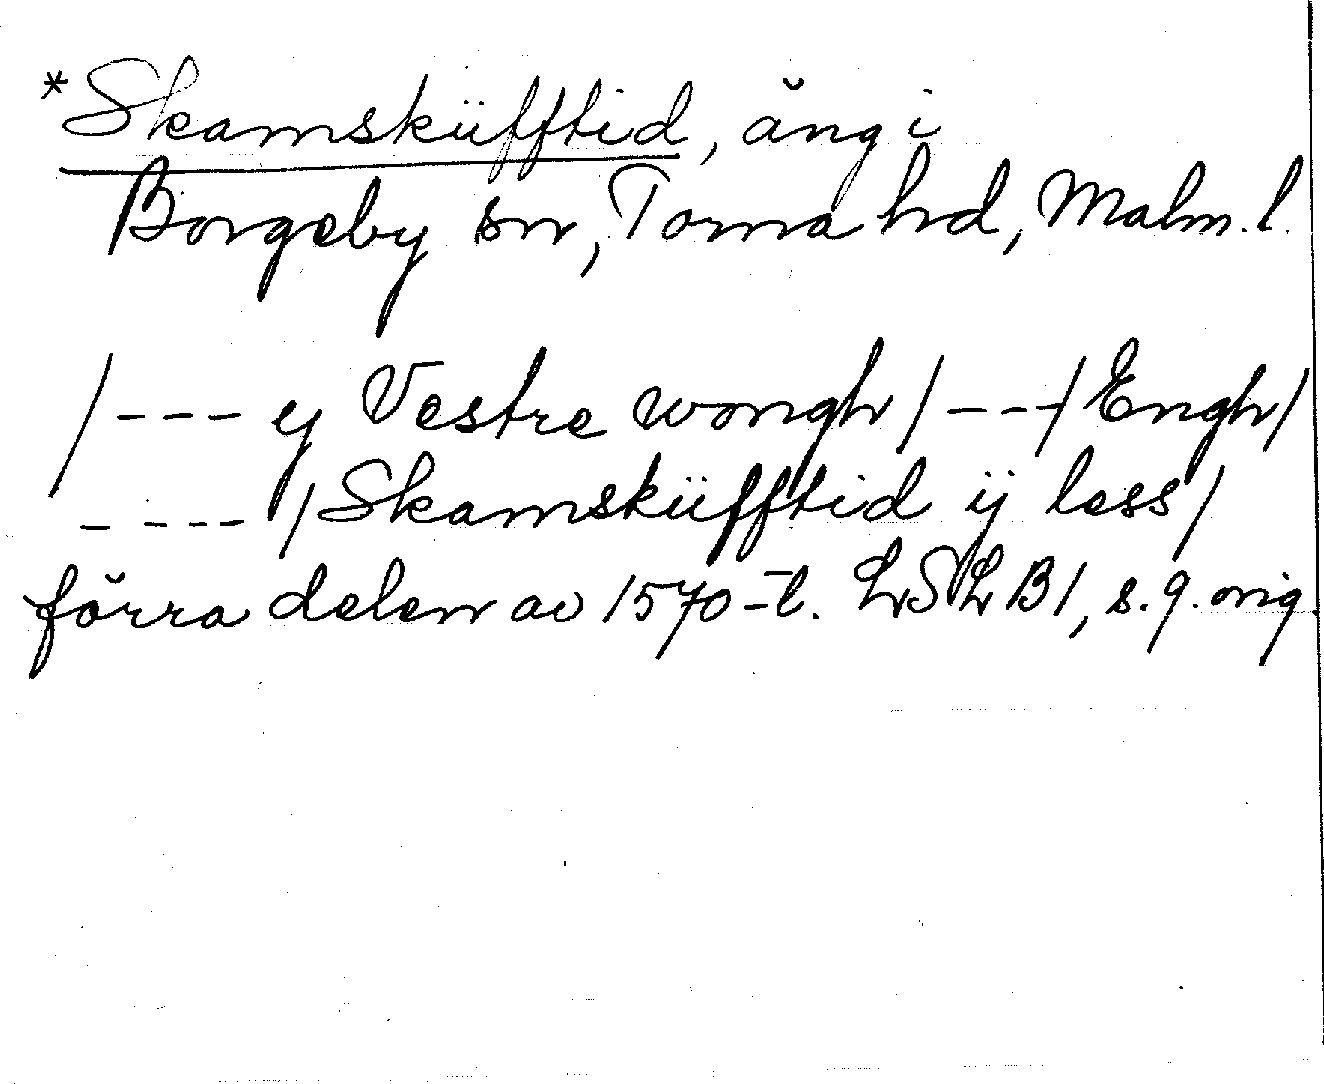 *Skamsküfftid, äng i
Borgeby sn, Torna hd, Malm. l.
/--- ij Vestre wongh /---/ Engh/
---- / Skamsküfftid ij less/
förra delen av 1570-t. LSLB1, s. 9. orig